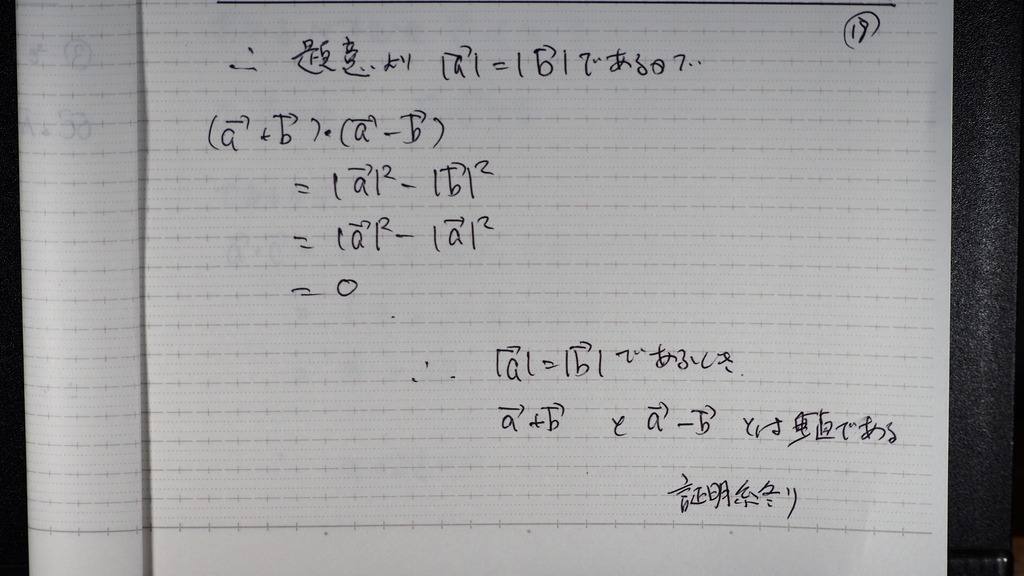 ⑲
∴ 題意より |a⃗| = |b⃗| であるので
(a⃗ + b⃗)・(a⃗ − b⃗)
= |a⃗|² − |b⃗|²
= |a⃗|² − |a⃗|²
= 0
∴ |a⃗| = |b⃗| であるとき
a⃗ + b⃗ と a⃗ − b⃗ とは垂直である
証明終り